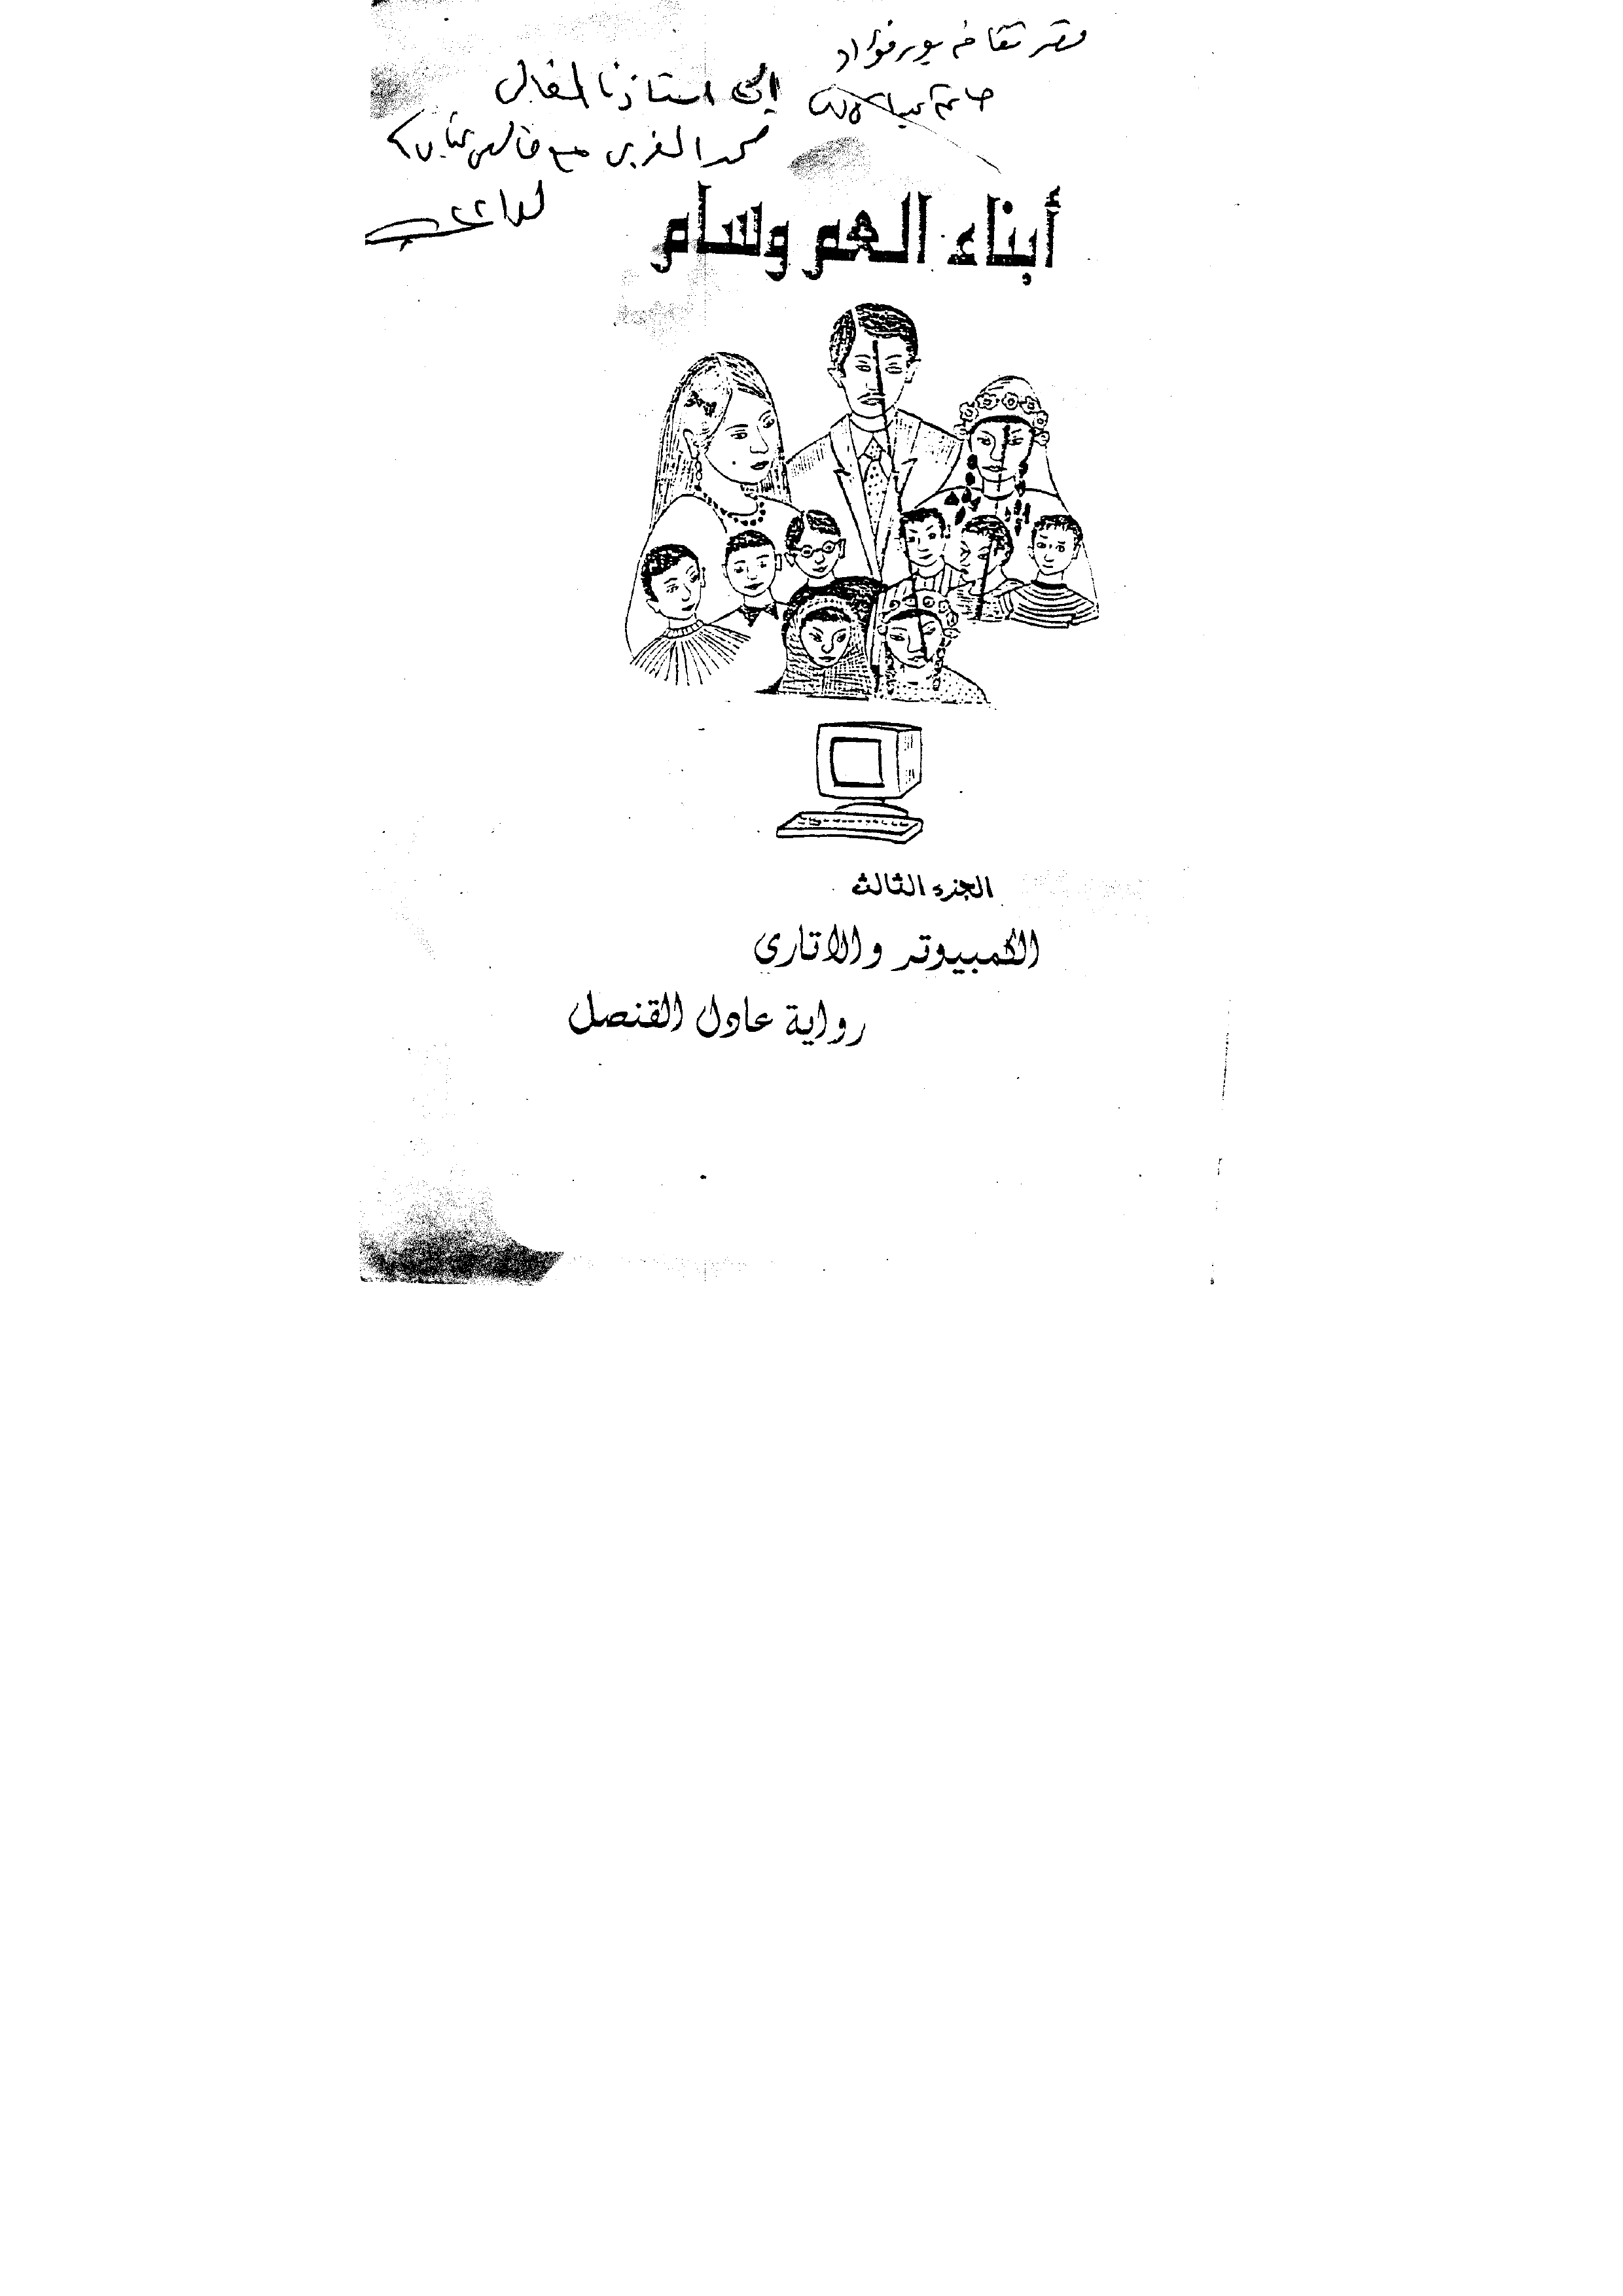 قصر ثقافة بورفؤاد
إلى استاذنا الغالى
محمد المغربى مع خالص
أبناء العم وسام
الجزء الثالث
الكمبيوتر والاتارى
رواية عادل القنصل